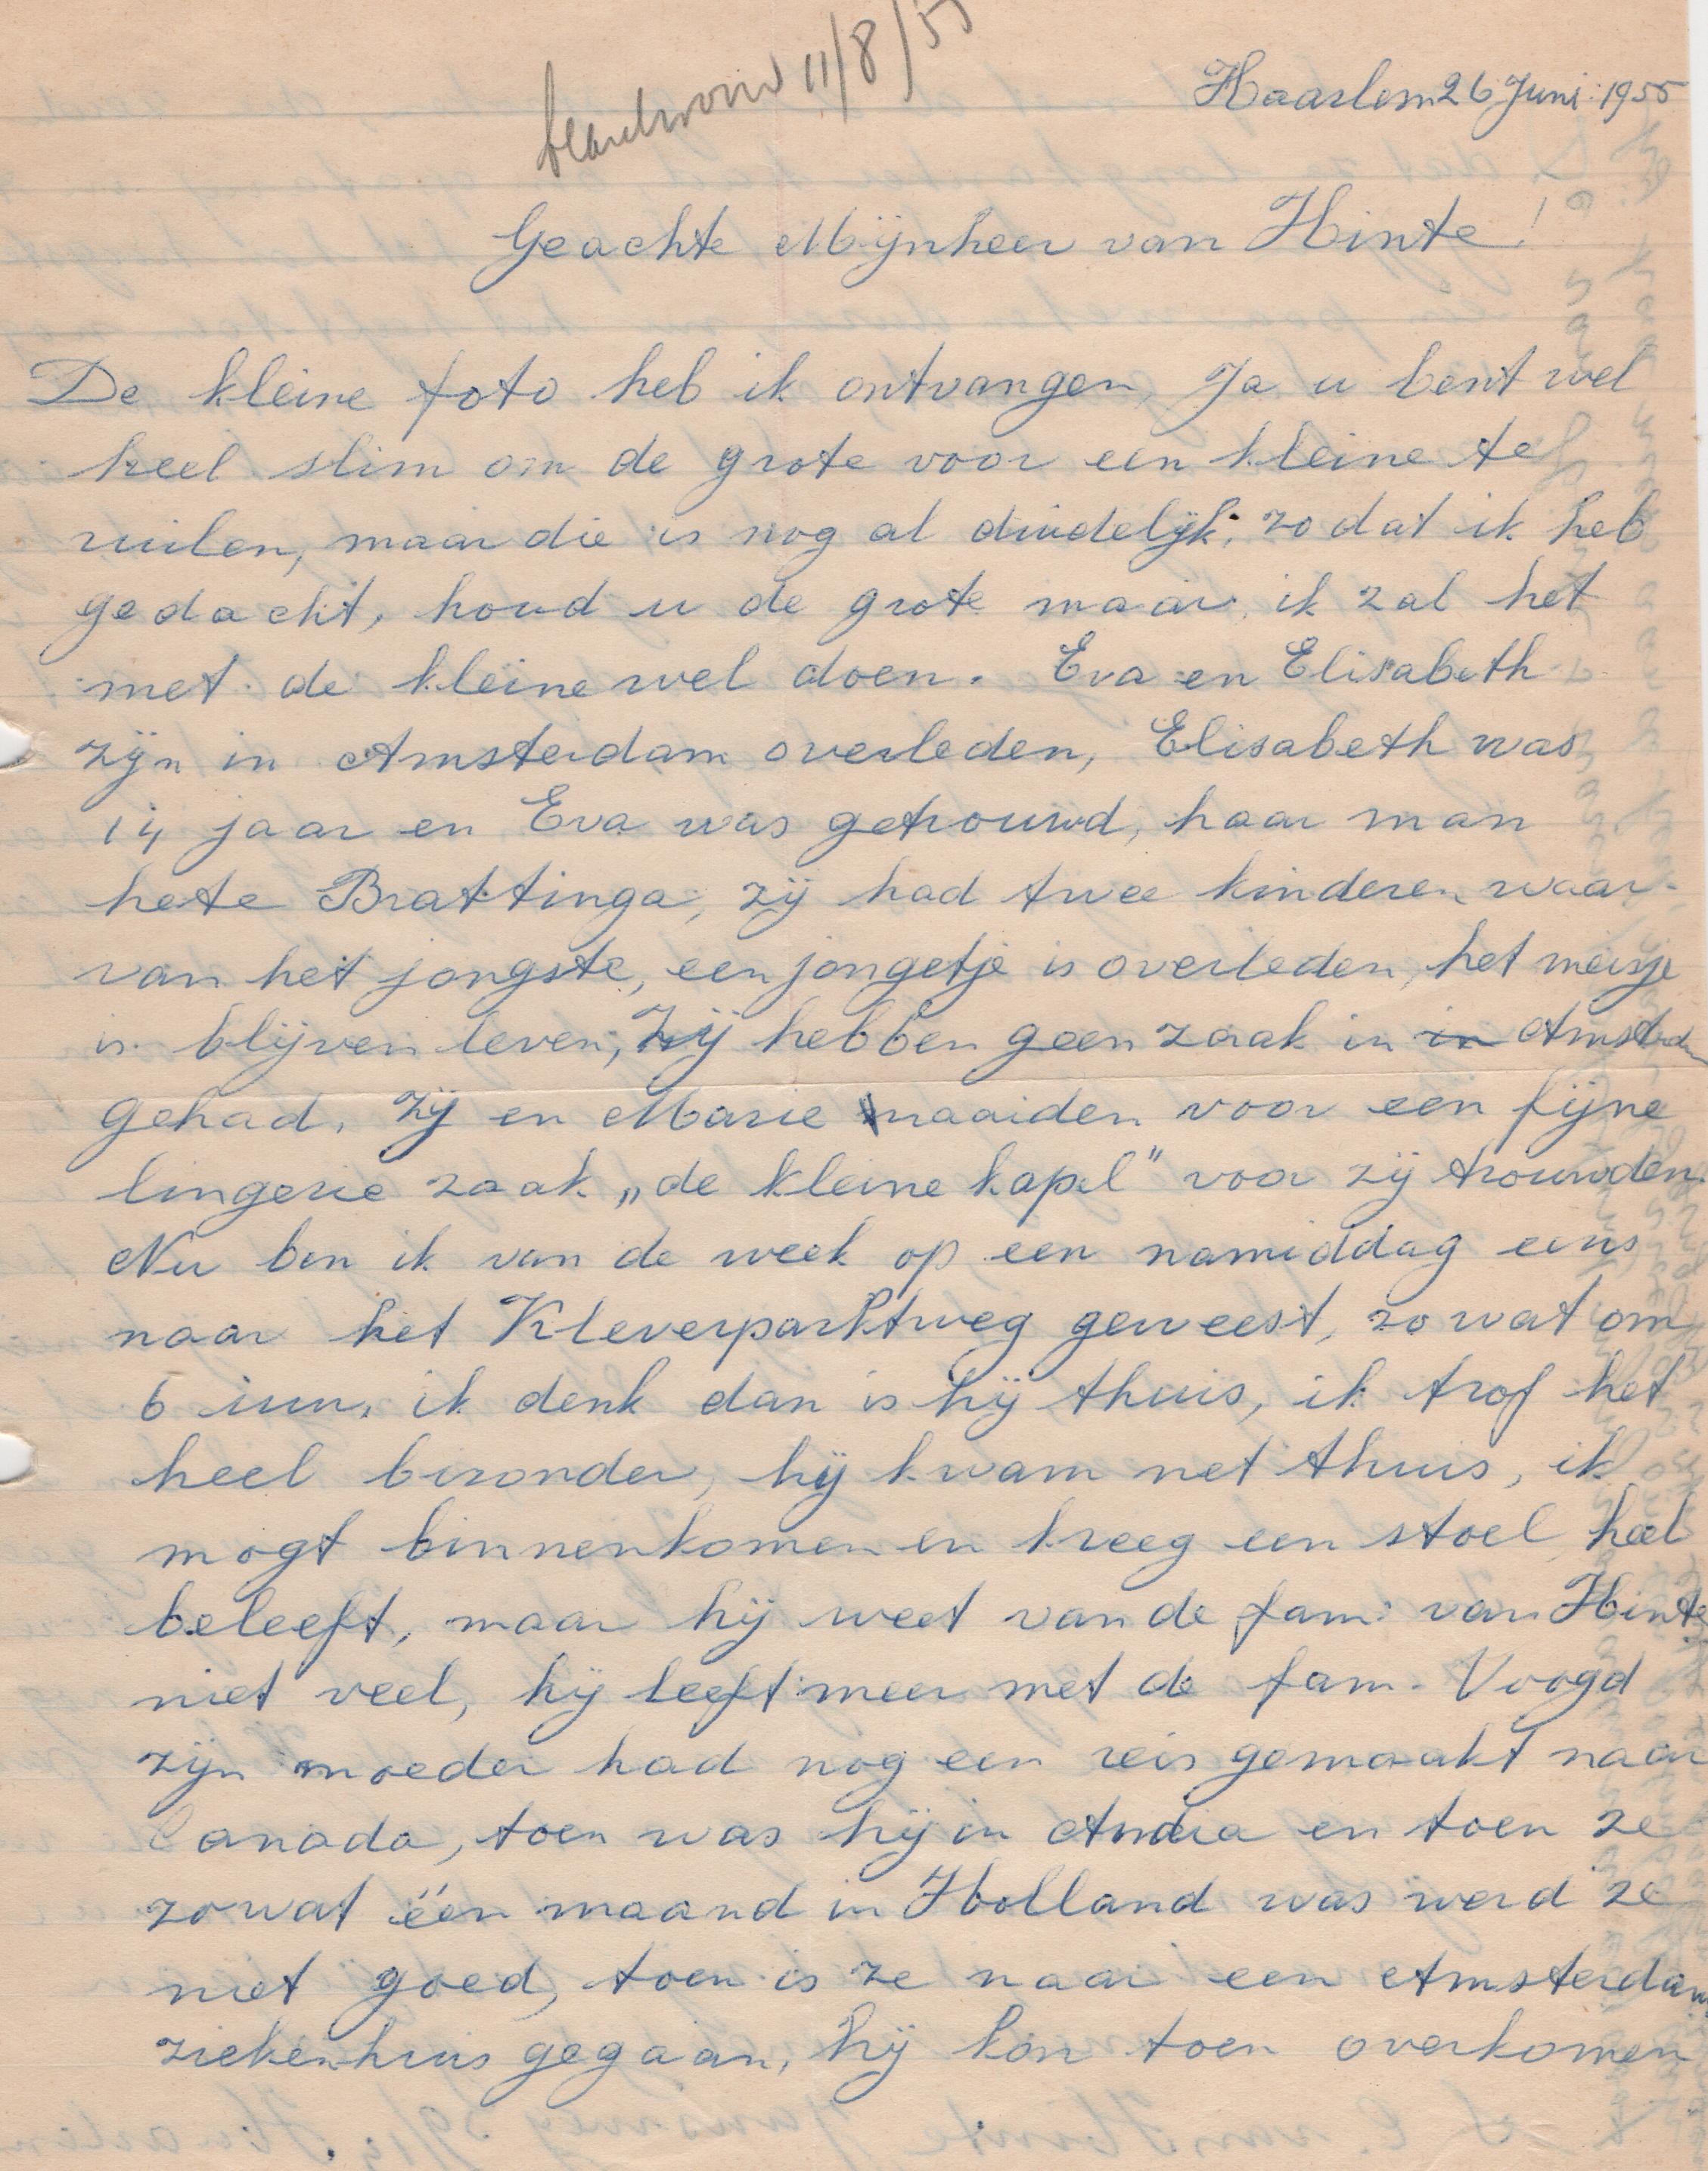 beantwoord 11/8/55
Haarlem 26 Juni 1955
Geachte Mijnheer van Hinte!
De kleine foto heb ik ontvangen, Ja u bent wel
heel slim om de grote voor een kleine te
ruilen, maar die is nog al duidelijk, zodat ik heb
gedacht, houd u de grote maar, ik zal het
met de kleine wel doen. Eva en Elisabeth
zijn in Amsterdam overleden, Elisabeth was
14 jaar en Eva was getrouwd, haar man
hete Brattinga, zij had twee kinderen waar-
van het jongste, een jongetje is overleden, het meisje
is blijven leven, zij hebben geen zaak in in Amsterdam
gehad, zij en Marie naaiden voor een fijne
lingerie zaak „de kleine kapel" voor zij trouwden.
Nu ben ik van de week op een namiddag eens
naar het Kleverparktweg geweest, zo wat om
6 uur, ik denk dan is hij thuis, ik trof het
heel bizonder, hij kwam net thuis, ik
mogt binnenkomen en kreeg een stoel, heel
beleeft, maar hij weet van de fam: van Hinte
niet veel, hij leeft meer met de fam. Voogd
zijn moeder had nog een reis gemaakt naar
Canada, toen was hij in India en toen ze
zowat één maand in Holland was werd ze
niet goed, toen is ze naar een Amsterdam
ziekenhuis gegaan, hij kon toen overkomen